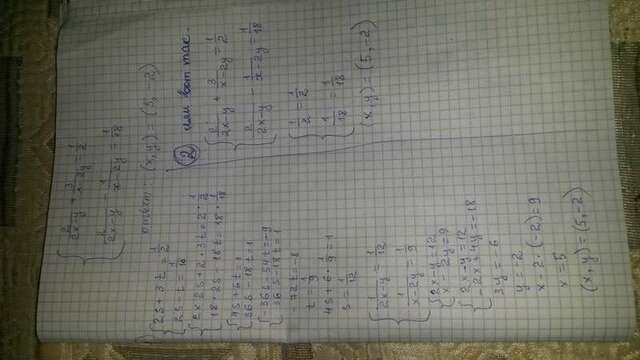 {2/(2x-y) + 3/(x-2y) = 1/2
{2/(2x-y) - 1/(x-2y) = 1/18
ответ: (x,y) = (5,-2)
{2s+3t=1/2
{2s-t=1/18
{2×2s+2·3t=2·1/2
{18·2s-18t=18·1/18
{4s+6t=1
{36s-18t=1
{-36s-54t=-9
{36s-18t=1
-72t=-8
t=1/9
4s+6·1/9=1
s=1/12
{1/(2x-y)=1/12
{1/(x-2y)=1/9
{2x-y=12
{x-2y=9
{2x-y=12
{-2x+4y=-18
3y=-6
y=-2
x-2·(-2)=9
x=5
(x,y)=(5,-2)
② или вот так.
{2/(2x-y) + 3/(x-2y) = 1/2
{2/(2x-y) - 1/(x-2y) = 1/18
{1/2=1/2
{1/18=1/18
(x,y)=(5,-2)